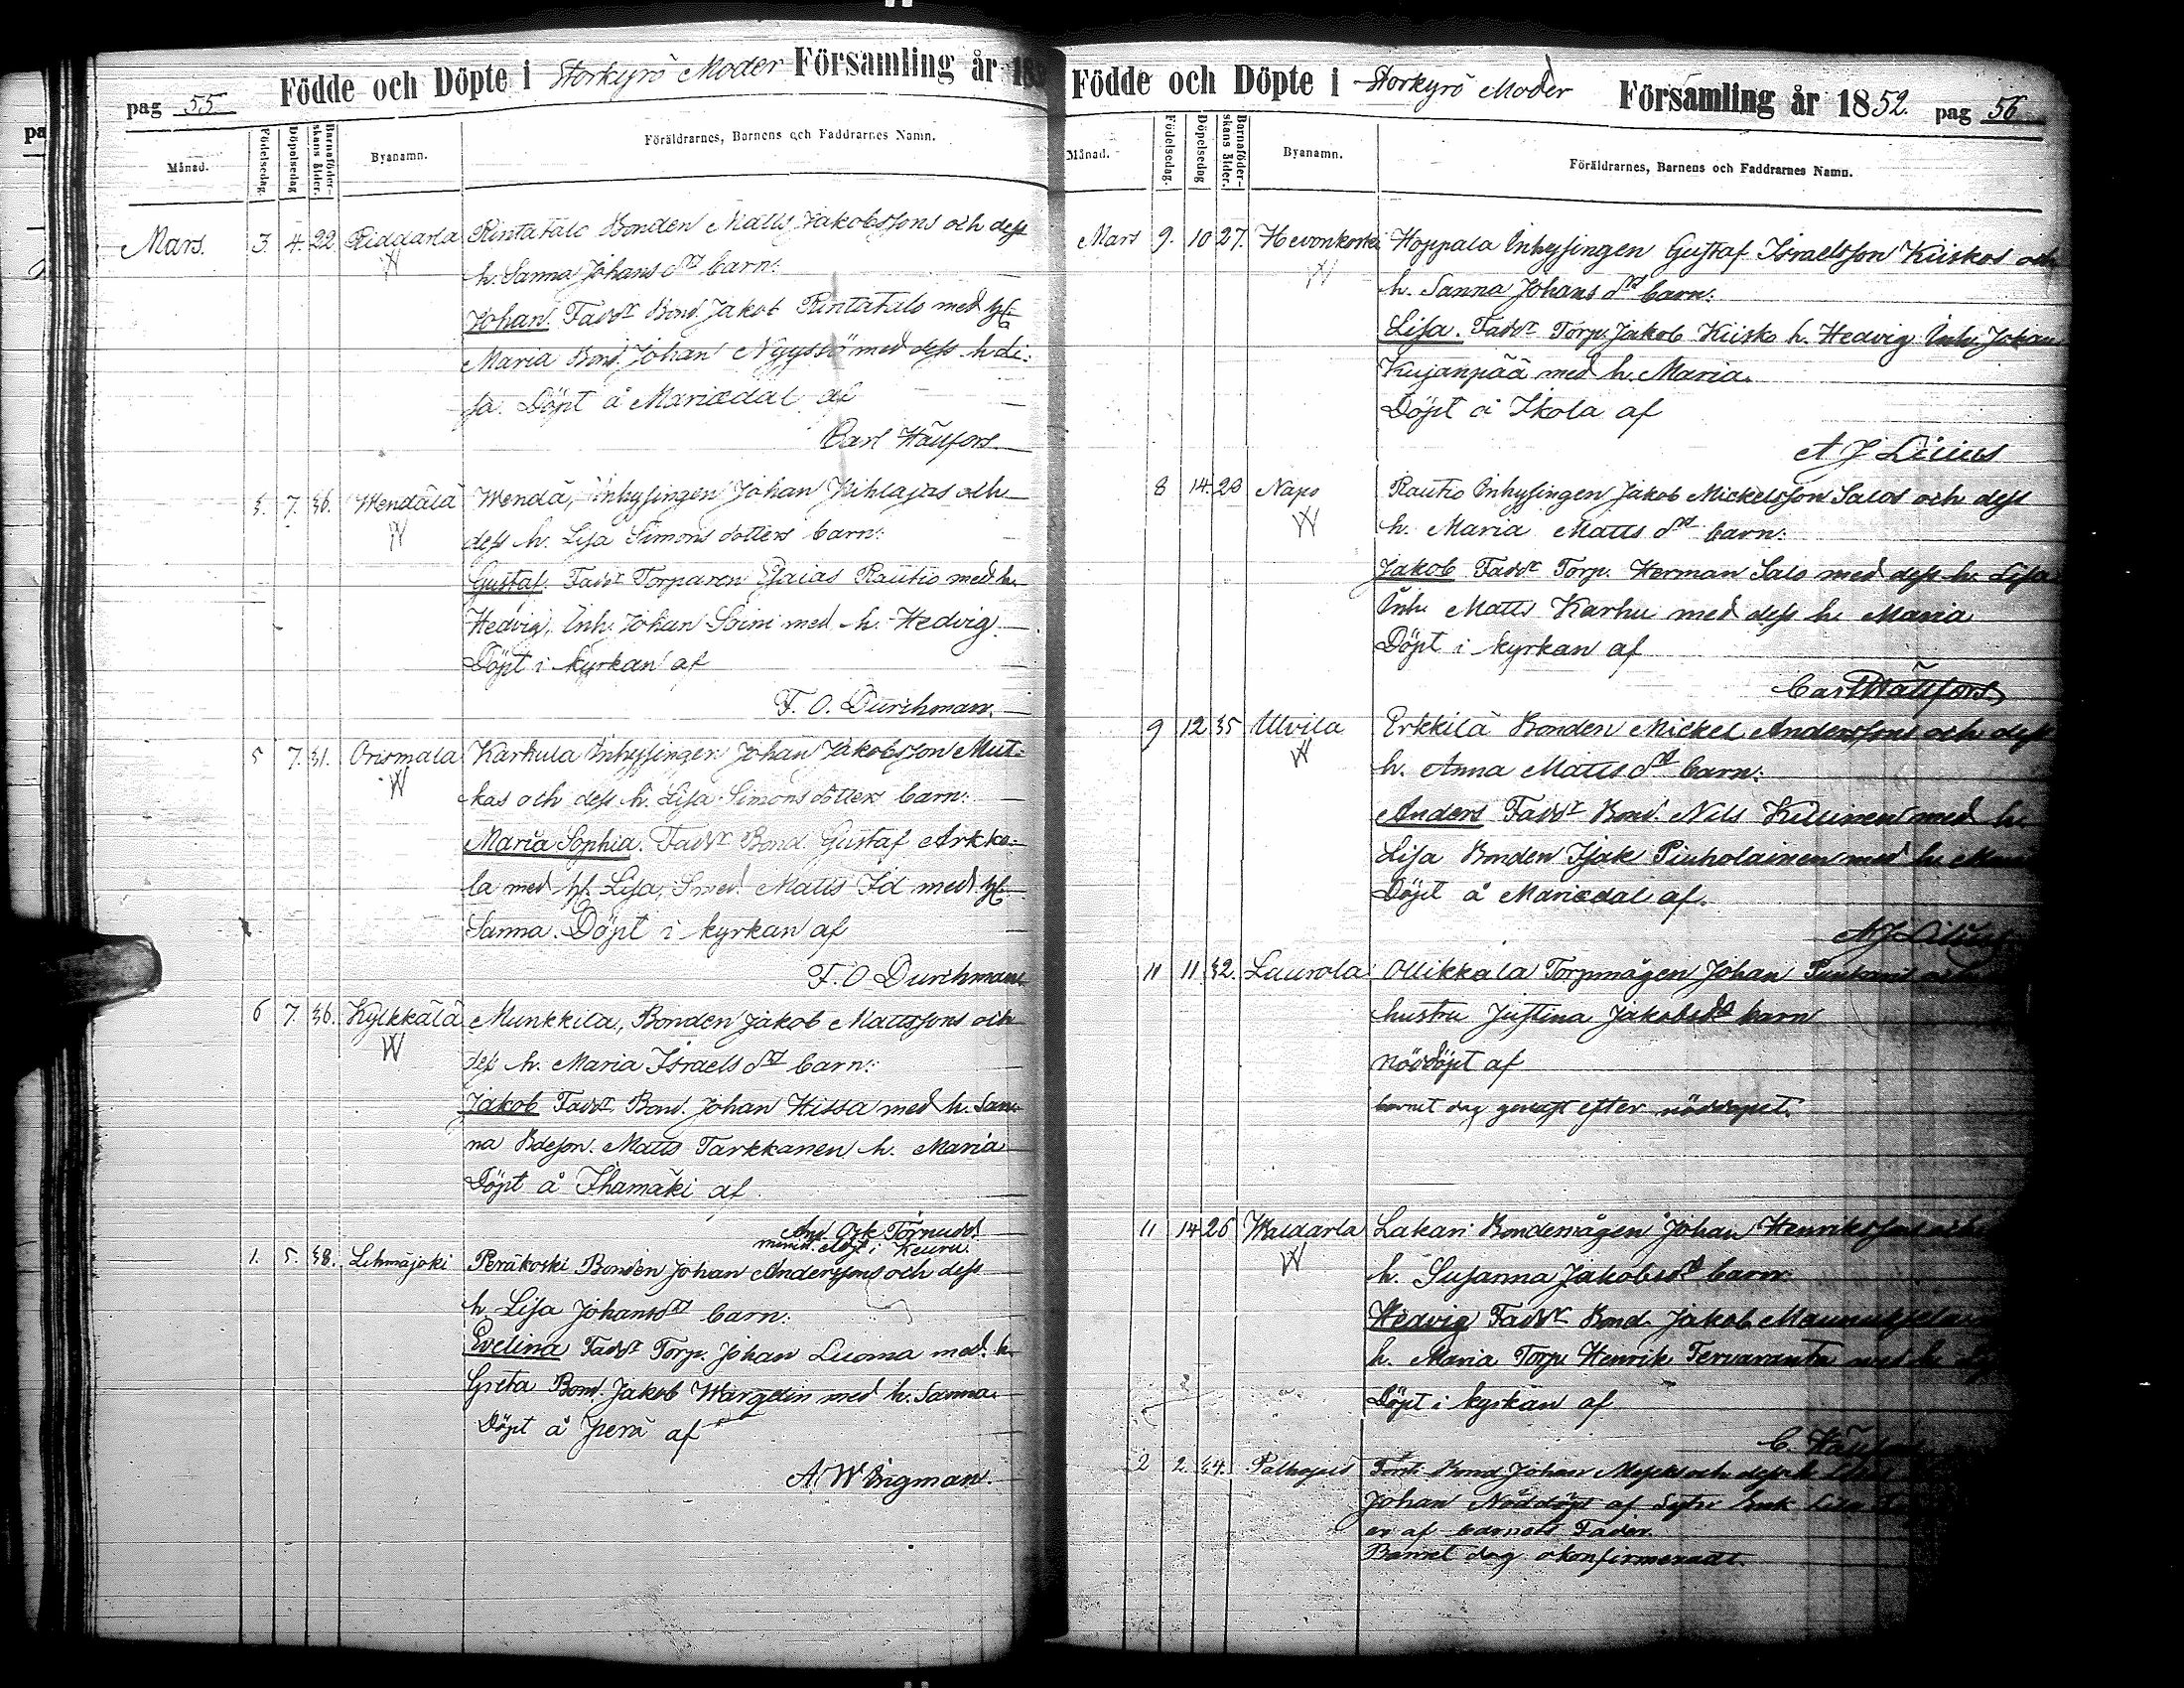 pag 55 Födde och Döpte i Storkyrö Moder Församling år 18
Månad. Födelsedag. Döpelsedag Barnaföder-skans ålder. Byanamn. Föräldrarnes, Barnens och Faddrarnes Namn.
Mars. 3 4. 22 Riddarla Rintatalo Bonden Matts Jakobssons och dess
h. Sanna Johans drs barn:
Johan. Faddr Bond. Jakob Rintatalo med h.
Maria Bond. Johan Nyyssö med dess h. Li-
sa. Döpt å Mariædal af
Carl Hällfors
7. 36. Wendälä Wendä, Inhysingen Johan Kihlajas och
dess h. Lisa Simons dotters barn:
Gustaf. Faddr Torparen Esaias Rautio med h.
Hedvig, Inh. Johan Soini med h. Hedvig.
Döpt i kyrkan af
F. O. Durchman.
5 7. 31. Orismala Karhula Inhysingen Johan Jakobsson Mut-
kas och dess h. Lisa Simons dotters barn:
Maria Sophia. Faddr Bond. Gustaf Arkko-
la med h. Lisa, Smed. Matts Id med h.
Sanna. Döpt i kyrkan af
F. O Durchman
6 7. 36. Kylkkälä Munkkila, Bonden Jakob Mattssons och
dess h. Maria Israels drs barn:
Jakob Faddr Bond. Johan Hissa med h. San-
na Bdeson. Matts Tarkkanen h. Maria
Döpt å Ihamäki af
And. Osk. Törnudd
minist. adj. i Keuru.
1. 5. 38. Lehmäjoki Peräkoski Bonden Johan Anderssons och dess
h. Lisa Johans drs barn:
Evelina Faddr Torp. Johan Luoma med h.
Greta Bond. Jakob Wargelin med h. Sanna.
Döpt å Perä af
A W Ingman.
Födde och Döpte i Storkyrö Moder Församling år 1852. pag 56
Månad. Födelsedag. Döpelsedag Barnaföder-skans ålder. Byanamn. Föräldrarnes, Barnens och Faddrarnes Namn.
Mars 9. 10 27. Hevonkoski Hoppala Inhysingen Gustaf Israelsson Kiiskos och
h. Sanna Johans drs barn:
Lisa. Faddr Torp. Jakob Kiisko h. Hedvig Inh. Johan
Kujanpää med h. Maria.
Döpt å Ikola af
A J Lilius
8 14. 28 Napo Rautio Inhysingen Jakob Mickelsson Salos och dess
h. Maria Matts drs barn:
Jakob Faddr Torp. Herman Salo med dess h. Lisa
Inh. Matts Karhu med dess h. Maria
Döpt i kyrkan af
Carl Hällfors
9 12 35 Ulvila Erkkilä Bonden Mickel Anderssons och dess
h. Anna Matts drs barn:
Anders Faddr Bond. Nils Kiuinen med h.
Lisa Bonden Isak Piuholainen med h.
Döpt å Mariædal af.
A J Lilius
11 11. 32. Laurola Ollikkala Torpmågen Johan
hustru Justina Jakobsdr barn
Nöddöpt af
barnet dog genast efter nöddopet.
11 14 26 Waldarla Lakari Bondemågen Johan Henrikssons och
h. Susanna Jakobsdrs barn:
Hedvig Faddr Bond. Jakob Maunuksela
h. Maria Torp. Henrik Tervaranta med h.
Döpt i kyrkan af
C. Hällfors
2 2. 34. Palhojais Bond Johan och dess h.
Johan Nöddöpt af Lisa
er af barnets Fader.
Barnet dog okonfirmeradt.